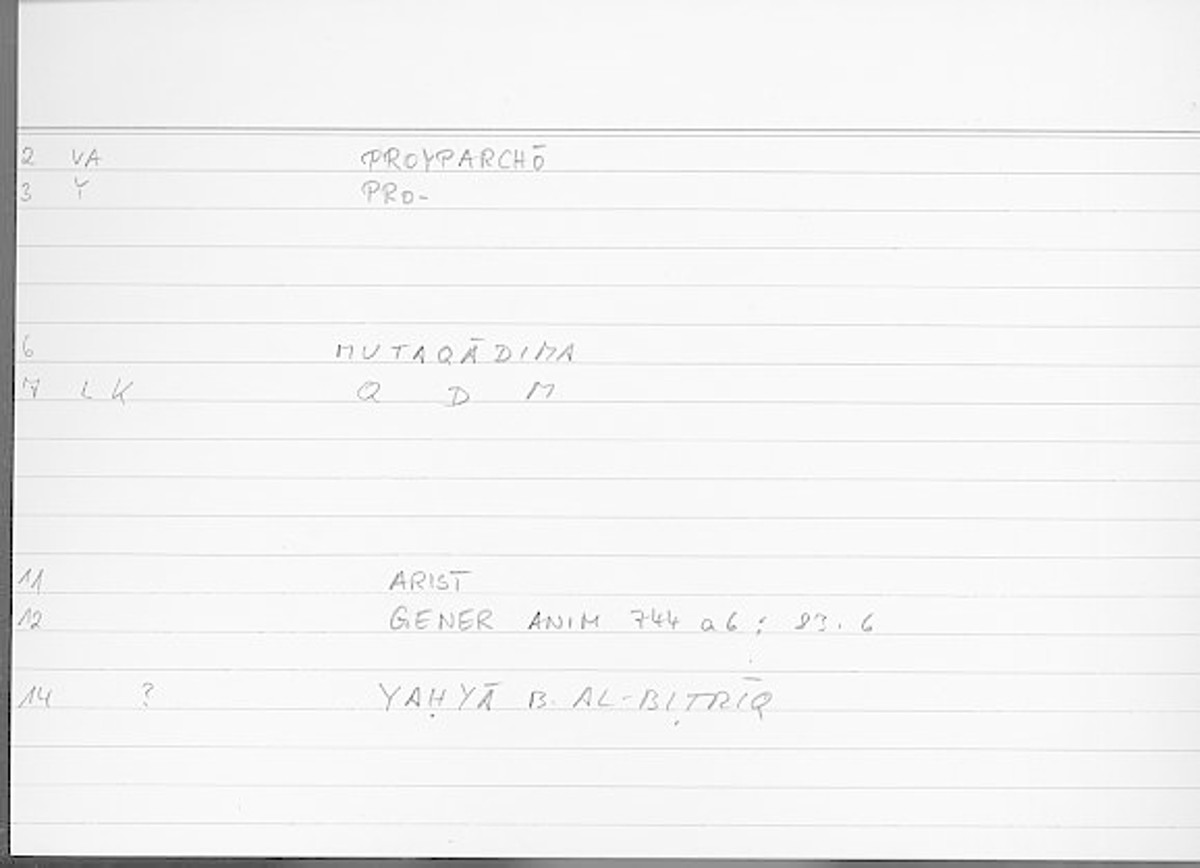 2 VA PROYPARCHŌ
3 Y PRO-
6 MUTAQĀDIMA
7 LK Q D M
11 ARIST
12 GENER ANIM 744 a6 ; 83.6
14 ? YAḤYĀ B. AL-BIṬRĪQ